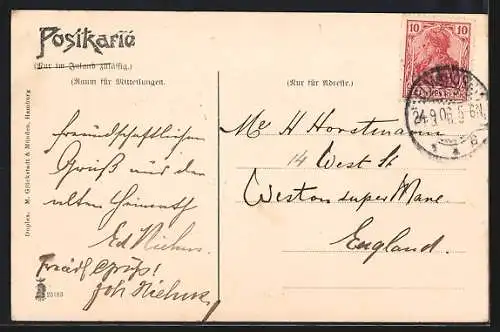 Postkarte
(Nur im Inland zulässig.)
(Raum für Mitteilungen.)
(Nur für Adresse.)
10 10
24.9.06
Freundschaftlichen
Gruß aus der
alten Heimath
Ed Niehus.
Freundl Grüße!
Joh Niehus,
Mr H Horstmann
14 West St
Weston super Mare
England.
Duplex. M. Glückstadt & Münden, Hamburg
25183